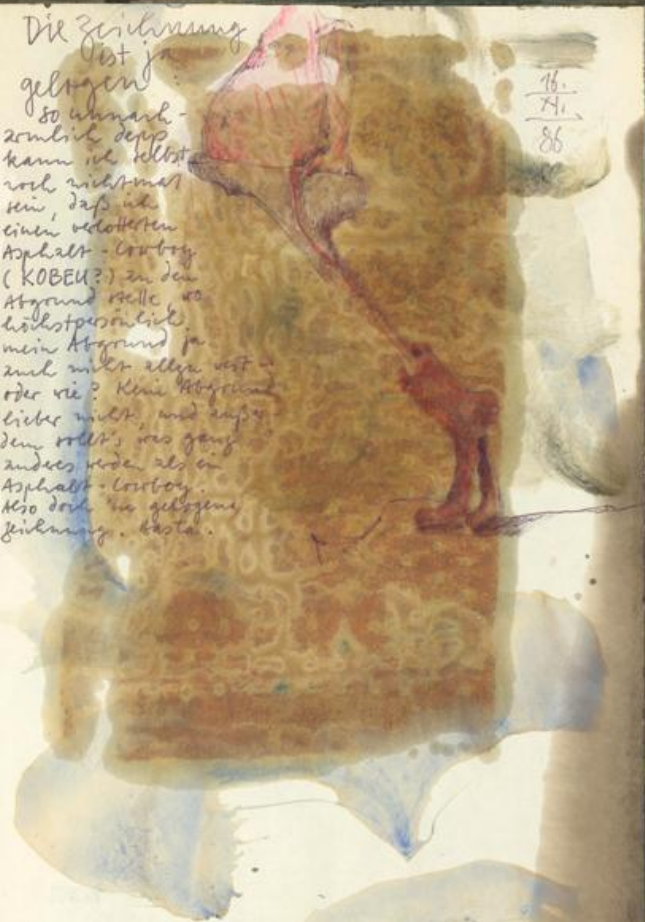 Die Zeichnung
ist ja
gelogen:
so unnach-
ahmlich depp
kann ich selbst
noch nichtmal
sein, daß ich
einen verlotterten
Asphalt-Cowboy
(KOBEU?) an den
Abgrund stelle, wo
höchstpersönlich
mein Abgrund ja
auch nicht allen
oder wie? Keine Abgrund
lieber nicht, und außer-
dem sollt's was ganz
anderes werden als ein
Asphalt-Cowboy.
Also doch 'ne gelogene
Zeichnung. basta.
16.
XI.
86